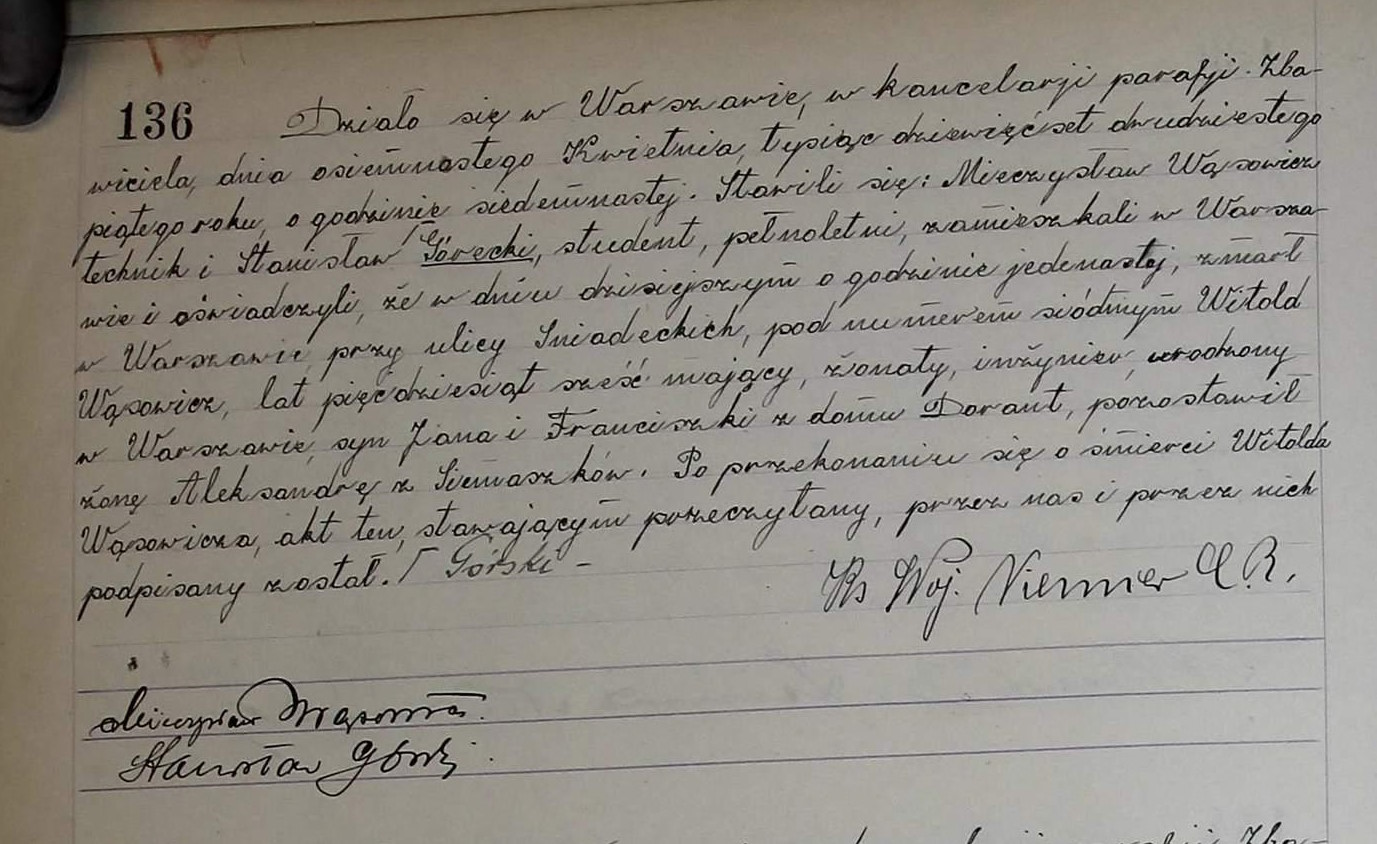 136 Działo się w Warszawie, w kancelarji parafji Zba-
wiciela, dnia osiemnastego Kwietnia, tysiąc dziewięćset dwudziestego
piątego roku, o godzinie siedemnastej. Stawili się: Mieczysław Wąsowicz
technik i Stanisław Górecki, student, pełnoletni, zamieszkali w Warsza-
wie i oświadczyli, że w dniu dzisiejszym o godzinie jedenastej, zmarł
w Warszawie, przy ulicy Śniadeckich, pod numerem siódmym Witold
Wąsowicz, lat pięćdziesiąt sześć mający, żonaty, inżynier, urodzony
w Warszawie, syn Jana i Franciszki z domu Dorant, pozostawił
żonę Aleksandrę z Siemaszków. Po przekonaniu się o śmierci Witolda
Wąsowicza, akt ten, stawającym przeczytany, przez nas i przez nich
podpisany został. Górski -
Ks Woj. Niemier
Mieczysław Wąsowicz
Stanisław Górski